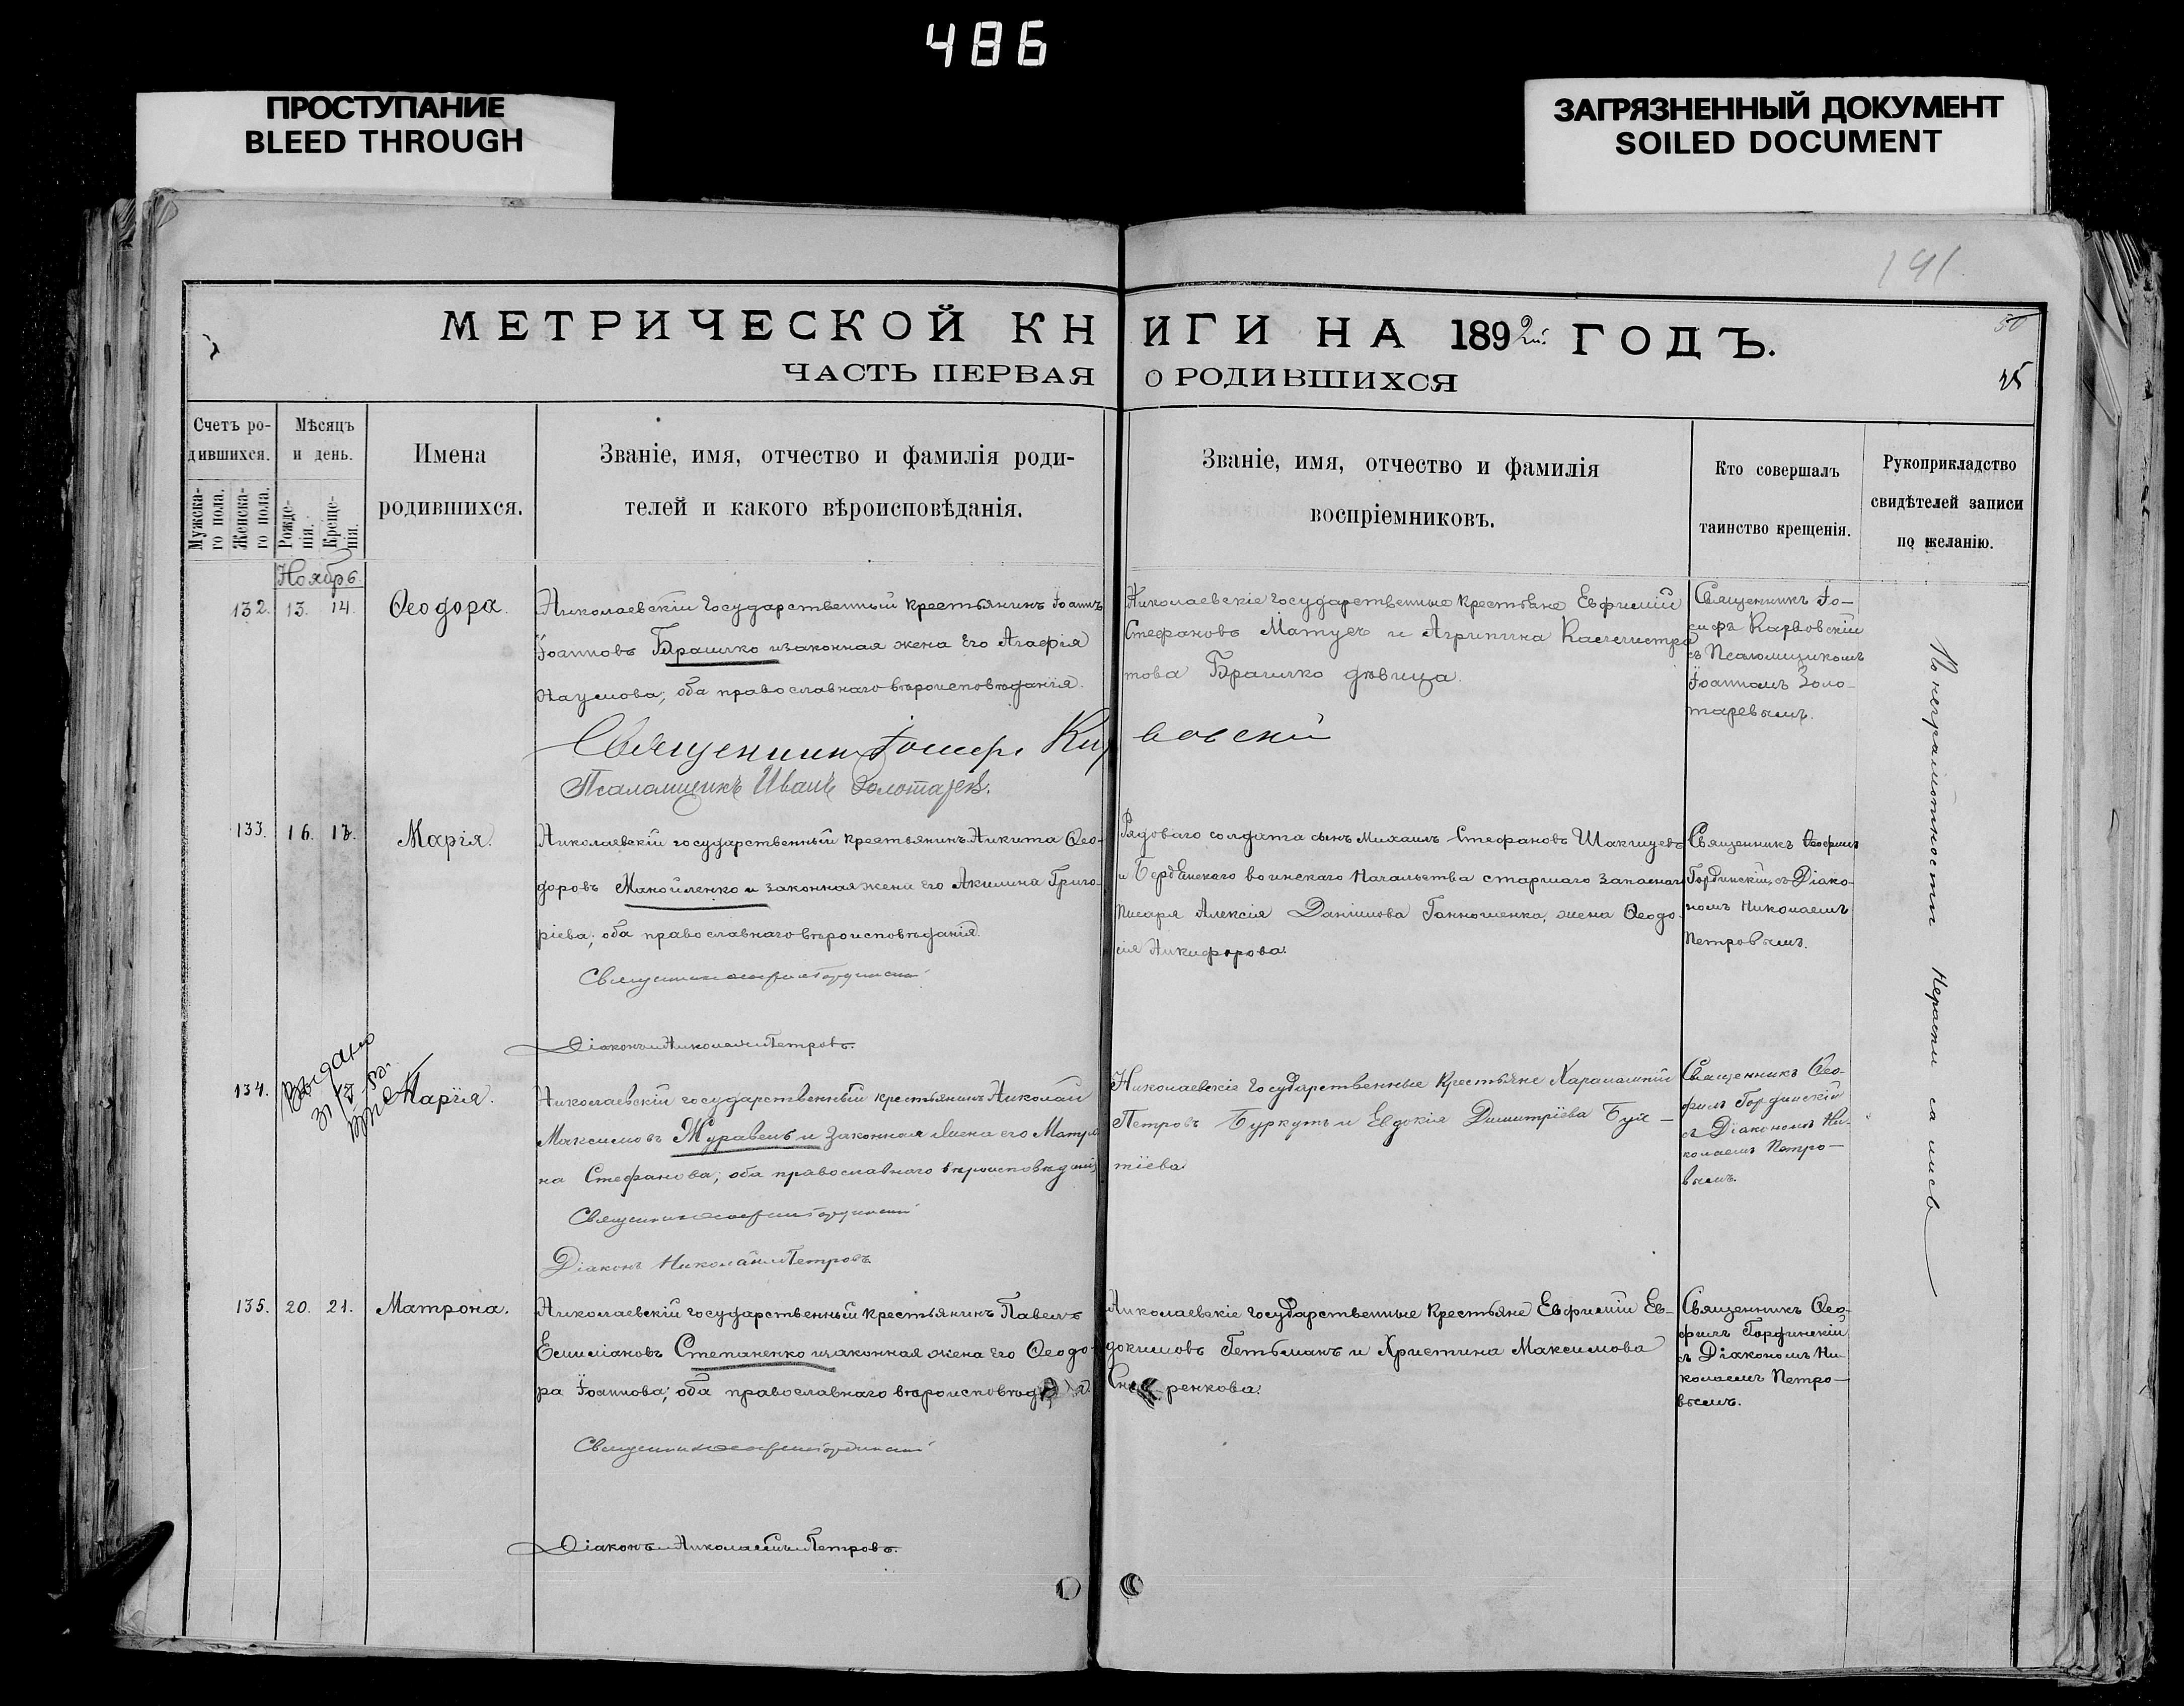 486
ПРОСТУПАНИЕ
BLEED THROUGH
ЗАГРЯЗНЕННЫЙ ДОКУМЕНТ
SOILED DOCUMENT
191
МЕТРИЧЕСКОЙ КНИГИ НА 1892й ГОДЪ.
50
ЧАСТЬ ПЕРВАЯ О РОДИВШИХСЯ
Счетъ ро-
дившихся.
Мужска-
го пола.
Женска-
го пола.
Мѣсяцъ
и день.
Рожде-
нія.
Креще-
нія.
Имена
родившихся.
Званіе, имя, отчество и фамилія роди-
телей и какого вѣроисповѣданія.
Званіе, имя, отчество и фамилія
воспріемниковъ.
Кто совершалъ
таинство крещенія.
Рукоприкладство
свидѣтелей записи
по желанію.
Ноябрь
132. 13. 14. Ѳеодора.
Николаевскій государственный крестьянинъ Іоаннъ
Іоанновъ Брашко и законная жена его Агафія
Наумова; оба православнаго вѣроисповѣданія.
Священникъ Іосифъ Карвовскій
Псаломщикъ Иванъ Золотаревъ.
Николаевскіе государственные крестьяне Евфимій
Стефановъ Матуе и Агрипина
това Брашко дѣвица.
Священникъ Іо-
сифъ Карвовскій
съ Псаломщикомъ
Іоанномъ Золо-
таревымъ.
133. 16. Марія.
Николаевскій государственный крестьянинъ Никита Ѳео-
доровъ Манойленко и законная жена его Акилина Григо-
ріева; оба православнаго вѣроисповѣданія.
Священникъ Ѳеофилъ Гординскій
Діаконъ Николай Петровъ.
Рядоваго солдата сынъ Михаилъ Стефановъ
и Бердянскаго воинскаго Начальства старшаго запаснаго
писаря Алексія Даніилова жена Ѳеодо-
сія Никифорова.
Священникъ Ѳеофилъ
Гординскій, съ Діако-
номъ Николаемъ
Петровымъ.
134. Выдано
Марія.
Николаевскій государственный крестьянинъ Николай
Максимовъ Журавель и законная жена его Матро-
на Стефанова; оба православнаго вѣроисповѣданія
Священникъ Ѳеофилъ Гординскій
Діаконъ Николай Петровъ
Николаевскіе государственные крестьяне Харалампій
Петровъ Буркутъ и Евдокія Димитріева Буй-
тіева
Священникъ Ѳео-
филъ Гординскій
съ Діакономъ Ни-
колаемъ Петро-
вымъ.
135. 20. 21. Матрона.
Николаевскій государственный крестьянинъ Павелъ
Емиліановъ Степаненко и законная жена его Ѳеодо-
ра Іоаннова; оба православнаго
Священникъ Ѳеофилъ Гординскій
Діаконъ Николай Петровъ.
Николаевскіе государственные крестьяне Евфимій Ев-
докимовъ Гетьманъ и Христина Максимова
ренкова.
Священникъ Ѳео-
филъ Гординскій
съ Діакономъ Ни-
колаемъ Петро-
вымъ.
По неграмотности